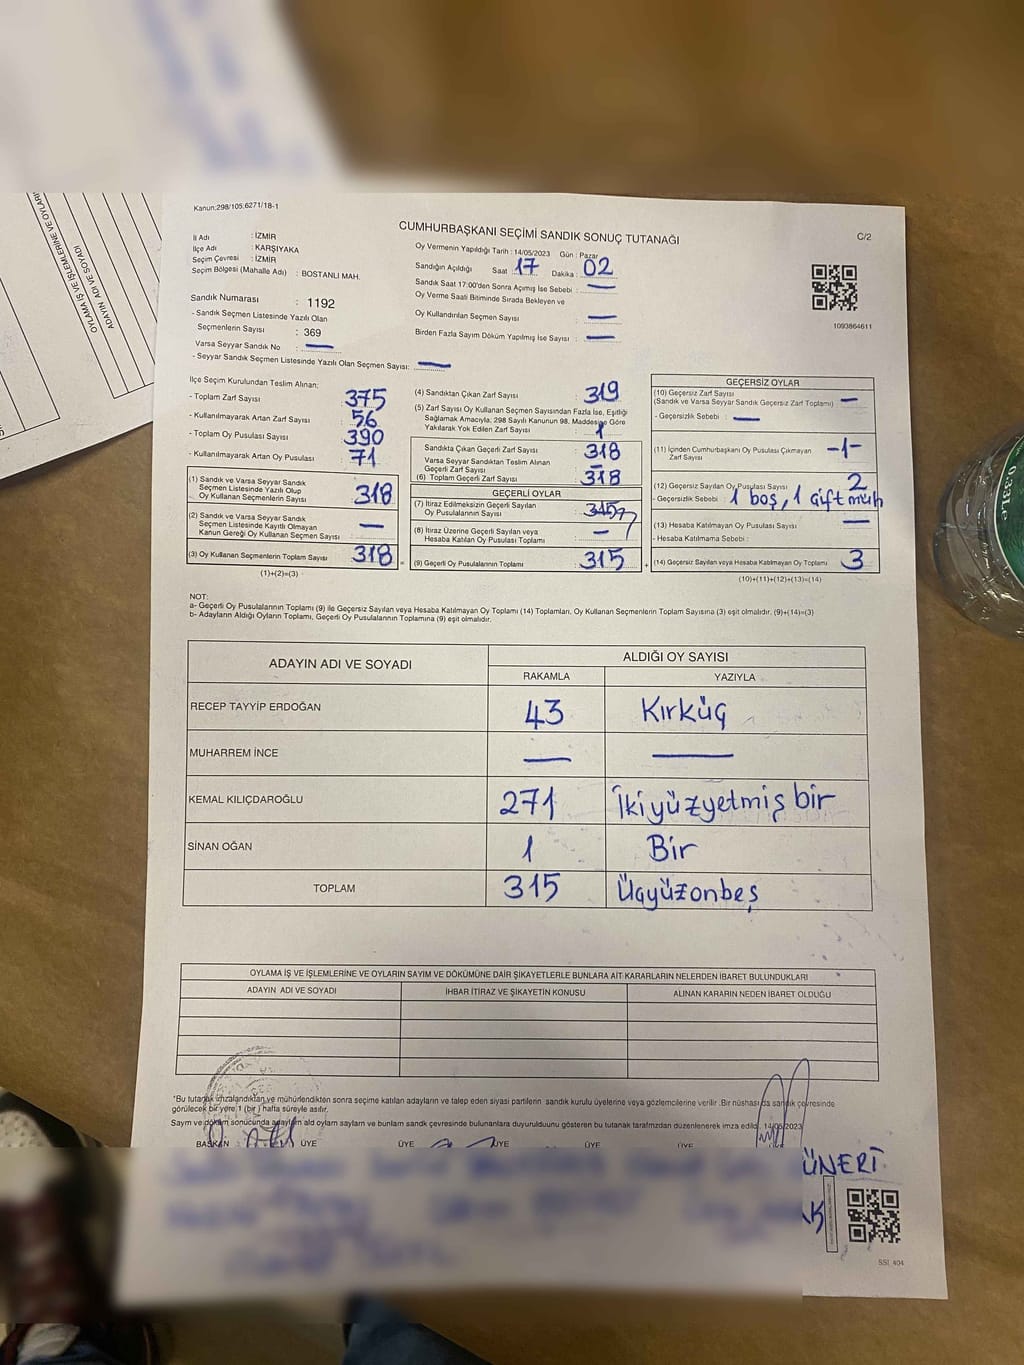 Kanun:298/105,6271/18-1
CUMHURBAŞKANI SEÇİMİ SANDIK SONUÇ TUTANAĞI
C/2
İl Adı : İZMİR
İlçe Adı : KARŞIYAKA
Seçim Çevresi : İZMİR
Seçim Bölgesi (Mahalle Adı) : BOSTANLI MAH.
Sandık Numarası : 1192
- Sandık Seçmen Listesinde Yazılı Olan
Seçmenlerin Sayısı : 369
Varsa Seyyar Sandık No : —
- Seyyar Sandık Seçmen Listesinde Yazılı Olan Seçmen Sayısı: —
Oy Vermenin Yapıldığı Tarih : 14/05/2023 Gün : Pazar
Sandığın Açıldığı Saat 17 Dakika : 02
Sandık Saat 17:00'den Sonra Açımış İse Sebebi : —
Oy Verme Saati Bitiminde Sırada Bekleyen ve
Oy Kullandırılan Seçmen Sayısı : —
Birden Fazla Sayım Döküm Yapılmış İse Sayısı : —
1093864611
İlçe Seçim Kurulundan Teslim Alınan:
- Toplam Zarf Sayısı 375
- Kullanılmayarak Artan Zarf Sayısı 56
- Toplam Oy Pusulası Sayısı 390
- Kullanılmayarak Artan Oy Pusulası 71
(1) Sandık ve Varsa Seyyar Sandık
Seçmen Listesinde Yazılı Olup
Oy Kullanan Seçmenlerin Sayısı 318
(2) Sandık ve Varsa Seyyar Sandık
Seçmen Listesinde Kayıtlı Olmayan
Kanun Gereği Oy Kullanan Seçmen Sayısı —
(3) Oy Kullanan Seçmenlerin Toplam Sayısı 318
(1)+(2)=(3)
(4) Sandıktan Çıkan Zarf Sayısı : 319
(5) Zarf Sayısı Oy Kullanan Seçmen Sayısından Fazla İse, Eşitliği
Sağlamak Amacıyla; 298 Sayılı Kanunun 98. Maddesine Göre
Yakılarak Yok Edilen Zarf Sayısı : 1
Sandıkta Çıkan Geçerli Zarf Sayısı : 318
Varsa Seyyar Sandıktan Teslim Alınan
Geçerli Zarf Sayısı : —
(6) Toplam Geçerli Zarf Sayısı : 318
GEÇERLİ OYLAR
(7) İtiraz Edilmeksizin Geçerli Sayılan
Oy Pusulalarının Sayısı :
(8) İtiraz Üzerine Geçerli Sayılan veya
Hesaba Katılan Oy Pusulası Toplamı : —
(9) Geçerli Oy Pusulalarının Toplamı : 315
GEÇERSİZ OYLAR
(10) Geçersiz Zarf Sayısı
(Sandık ve Varsa Seyyar Sandık Geçersiz Zarf Toplamı) : —
- Geçersizlik Sebebi : —
(11) İçinden Cumhurbaşkanı Oy Pusulası Çıkmayan
Zarf Sayısı : -1-
(12) Geçersiz Sayılan Oy Pusulası Sayısı : 2
- Geçersizlik Sebebi : 1 boş, 1 çift müh
(13) Hesaba Katılmayan Oy Pusulası Sayısı : —
- Hesaba Katılmama Sebebi :
(14) Geçersiz Sayılan veya Hesaba Katılmayan Oy Toplamı : 3
(10)+(11)+(12)+(13)=(14)
NOT:
a- Geçerli Oy Pusulalarının Toplamı (9) ile Geçersiz Sayılan veya Hesaba Katılmayan Oy Toplamı (14) Toplamları, Oy Kullanan Seçmenlerin Toplam Sayısına (3) eşit olmalıdır. (9)+(14)=(3)
b- Adayların Aldığı Oyların Toplamı, Geçerli Oy Pusulalarının Toplamına (9) eşit olmalıdır.
ADAYIN ADI VE SOYADI ALDIĞI OY SAYISI
RAKAMLA YAZIYLA
RECEP TAYYİP ERDOĞAN 43 Kırküç
MUHARREM İNCE — —
KEMAL KILIÇDAROĞLU 271 İkiyüzyetmiş bir
SİNAN OĞAN 1 Bir
TOPLAM 315 Üçyüzonbeş
OYLAMA İŞ VE İŞLEMLERİNE VE OYLARIN SAYIM VE DÖKÜMÜNE DAİR ŞİKAYETLERLE BUNLARA AİT KARARLARIN NELERDEN İBARET BULUNDUKLARI
ADAYIN ADI VE SOYADI İHBAR İTİRAZ VE ŞİKAYETİN KONUSU ALINAN KARARIN NEDEN İBARET OLDUĞU
*Bu tutanak imzalandıktan ve mühürlendikten sonra seçime katılan adayların ve talep eden siyasi partilerin sandık kurulu üyelerine veya gözlemcilerine verilir. Bir nüshası da sandık çevresinde
görülecek bir yere 1 (bir) hafta süreyle asılır.
Sayım ve döküm sonucunda adayların aldı oylam saylam ve bunlam sandık çevresinde bulunanlara duyurulduunu gösteren bu tutanak tarafımzdan düzenlenerek imza edild. 14/05/2023
BAŞKAN ÜYE ÜYE ÜYE ÜYE ÜYE
ÜNERİ
SSI_404
OYLAMA İŞ VE İŞLEMLERİNE VE OYLARI
ADAYIN ADI VE SOYADI